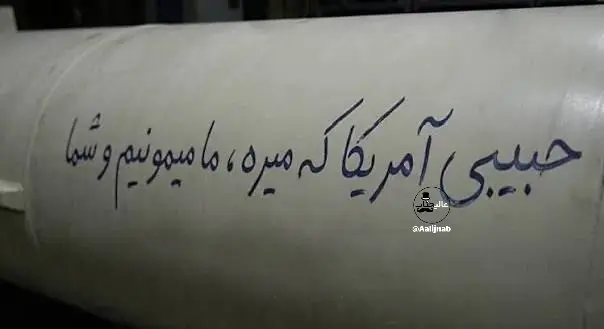 حبیبی آمریکا که میره، ما میمونیم و شما
عالیجناب
@Aalijnab